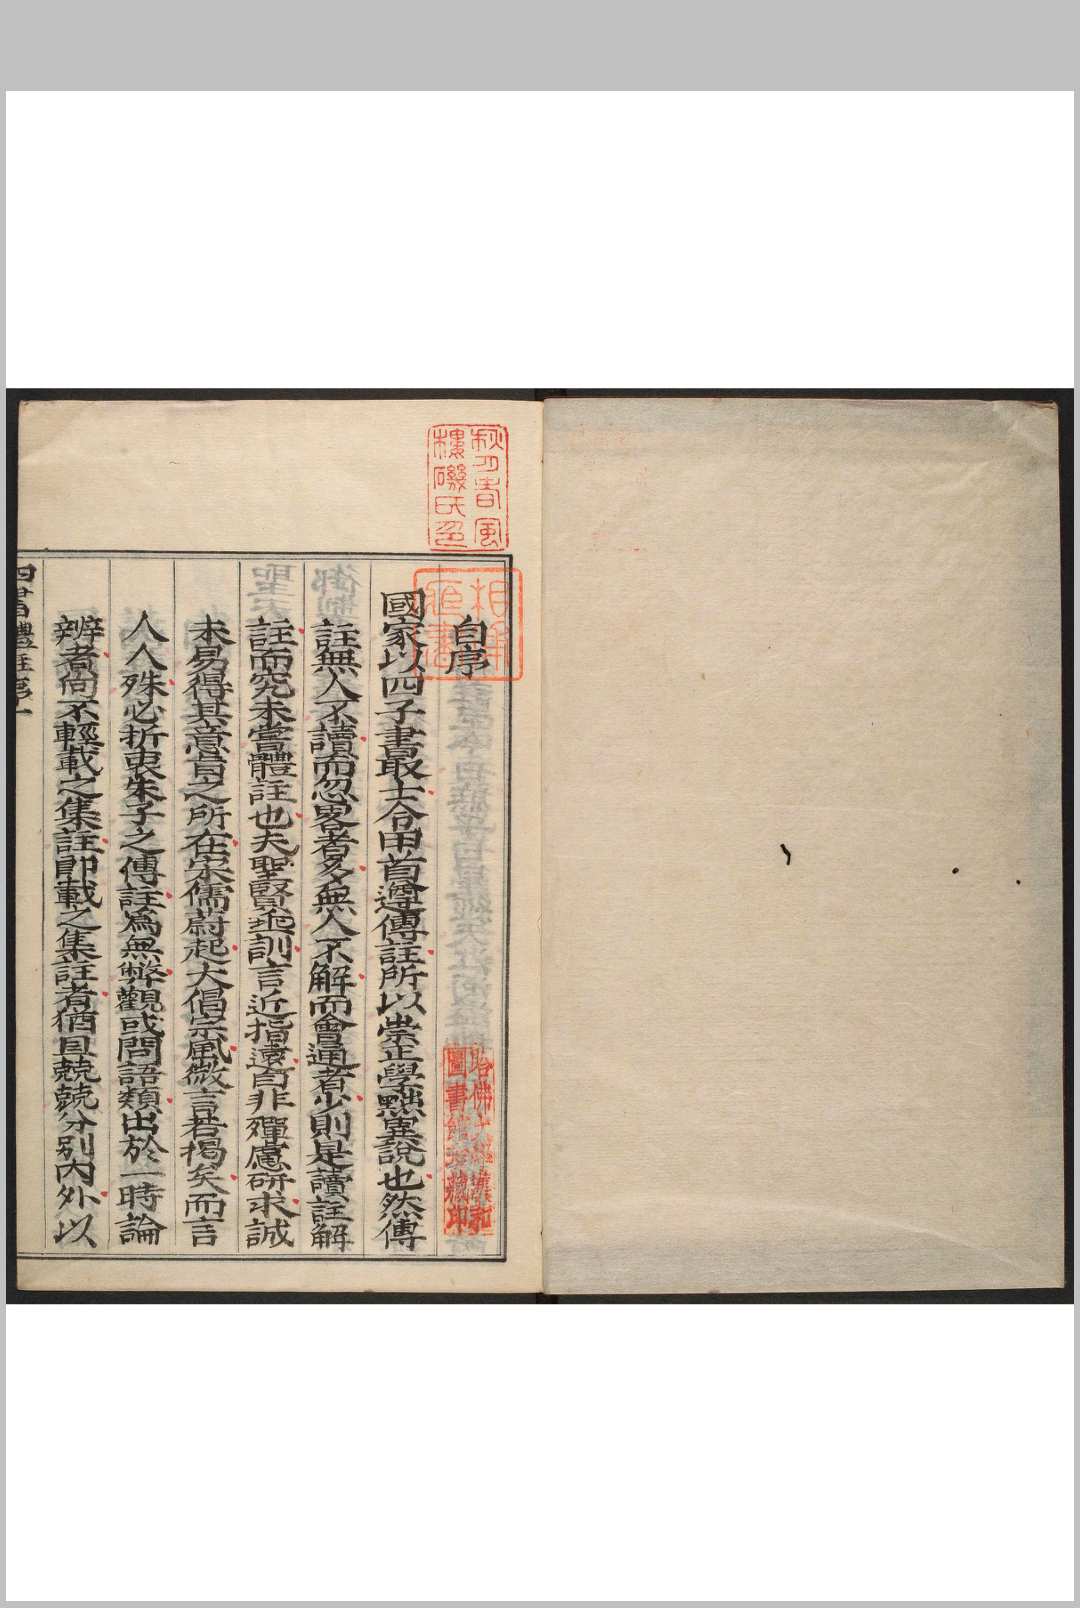 秋月春風
樓磯氏印
自序
國家以四子書取士令甲首遵傳註所以崇正學黜異說也然傳
註無人不讀而忽畧者多無人不解而會通者少則是讀註解
註而究未嘗體註也夫聖賢垂訓言近指遠自非殫慮研求誠
未易得其意肯之所在宋儒蔚起大倡宗風微言若揭矣而言
人人殊必折衷朱子之傳註為無弊觀或問語類出於一時論
辨者尚不輕載之集註即載之集註者猶且兢兢分別內外以
四書體註序一
哈佛大學漢和
圖書館珍藏印